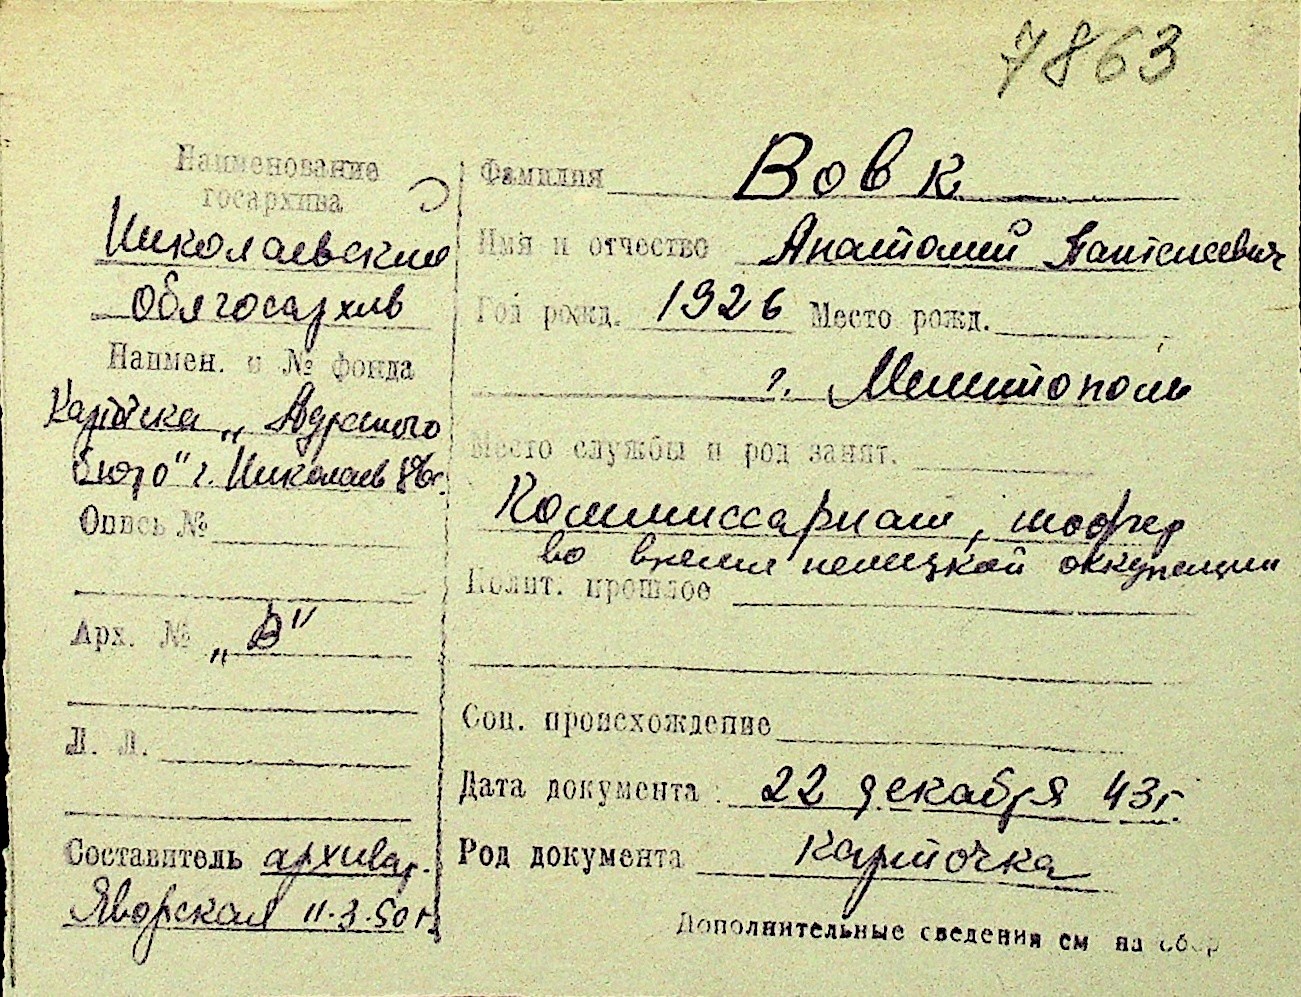 7863
Наименование
госархива
Николаевский
облгосархив
Наимен. и № фонда
Карточка „Адресного
бюро" г. Николаев
Опись №
Арх. № „В"
Л. Л.
Составитель архивар.
Яворская 11.3.50 г.
Фамилия Вовк
Имя и отчество Анатолий Пантелеевич
Год рожд. 1926 Место рожд.
г. Мелитополь
Место службы и род занят.
Комиссариат, шофер
во время немецкой оккупации
Полит. прошлое
Соц. происхождение
Дата документа 22 декабря 43 г.
Род документа карточка
Дополнительные сведения см на обор